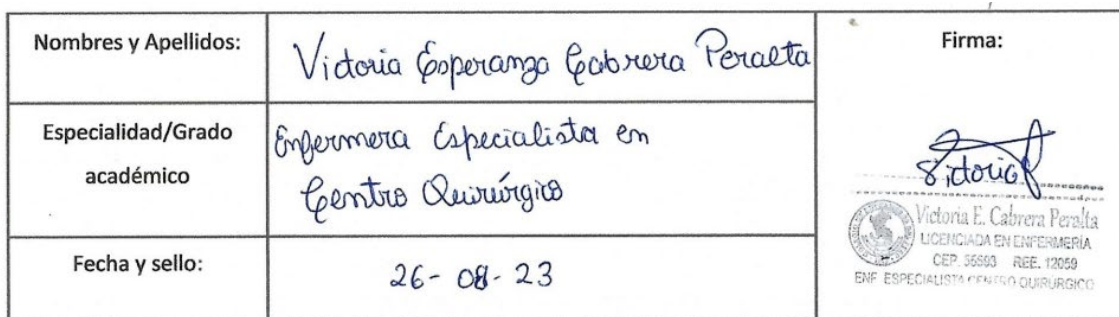 Nombres y Apellidos:
Victoria Esperanza Cabrera Peralta
Firma:
Especialidad/Grado
académico
Enfermera Especialista en
Centro Quirúrgico
Victoria
Victoria E. Cabrera Peralta
LICENCIADA EN ENFERMERÍA
CEP. 55593 REE. 12059
ENF ESPECIALISTA CENTRO QUIRÚRGICO
Fecha y sello:
26-08-23